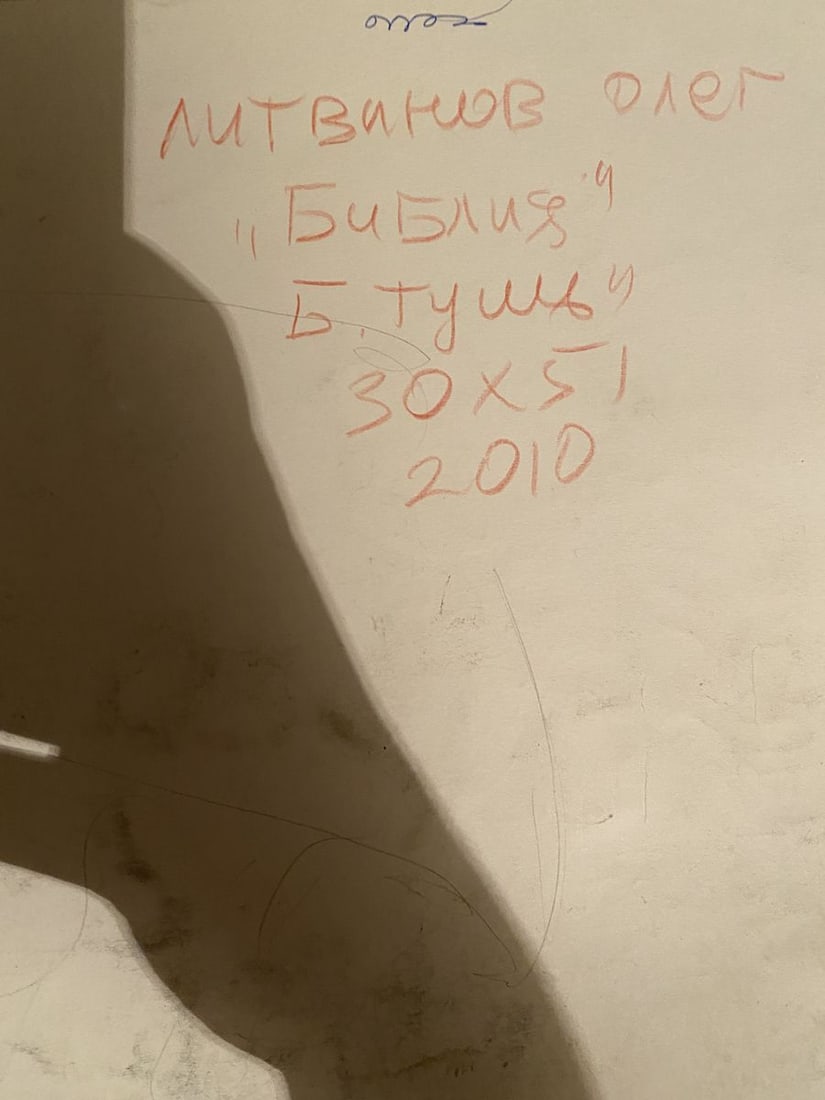 Литвинов Олег
„Библия"
Б. тушь"
30x51
2010